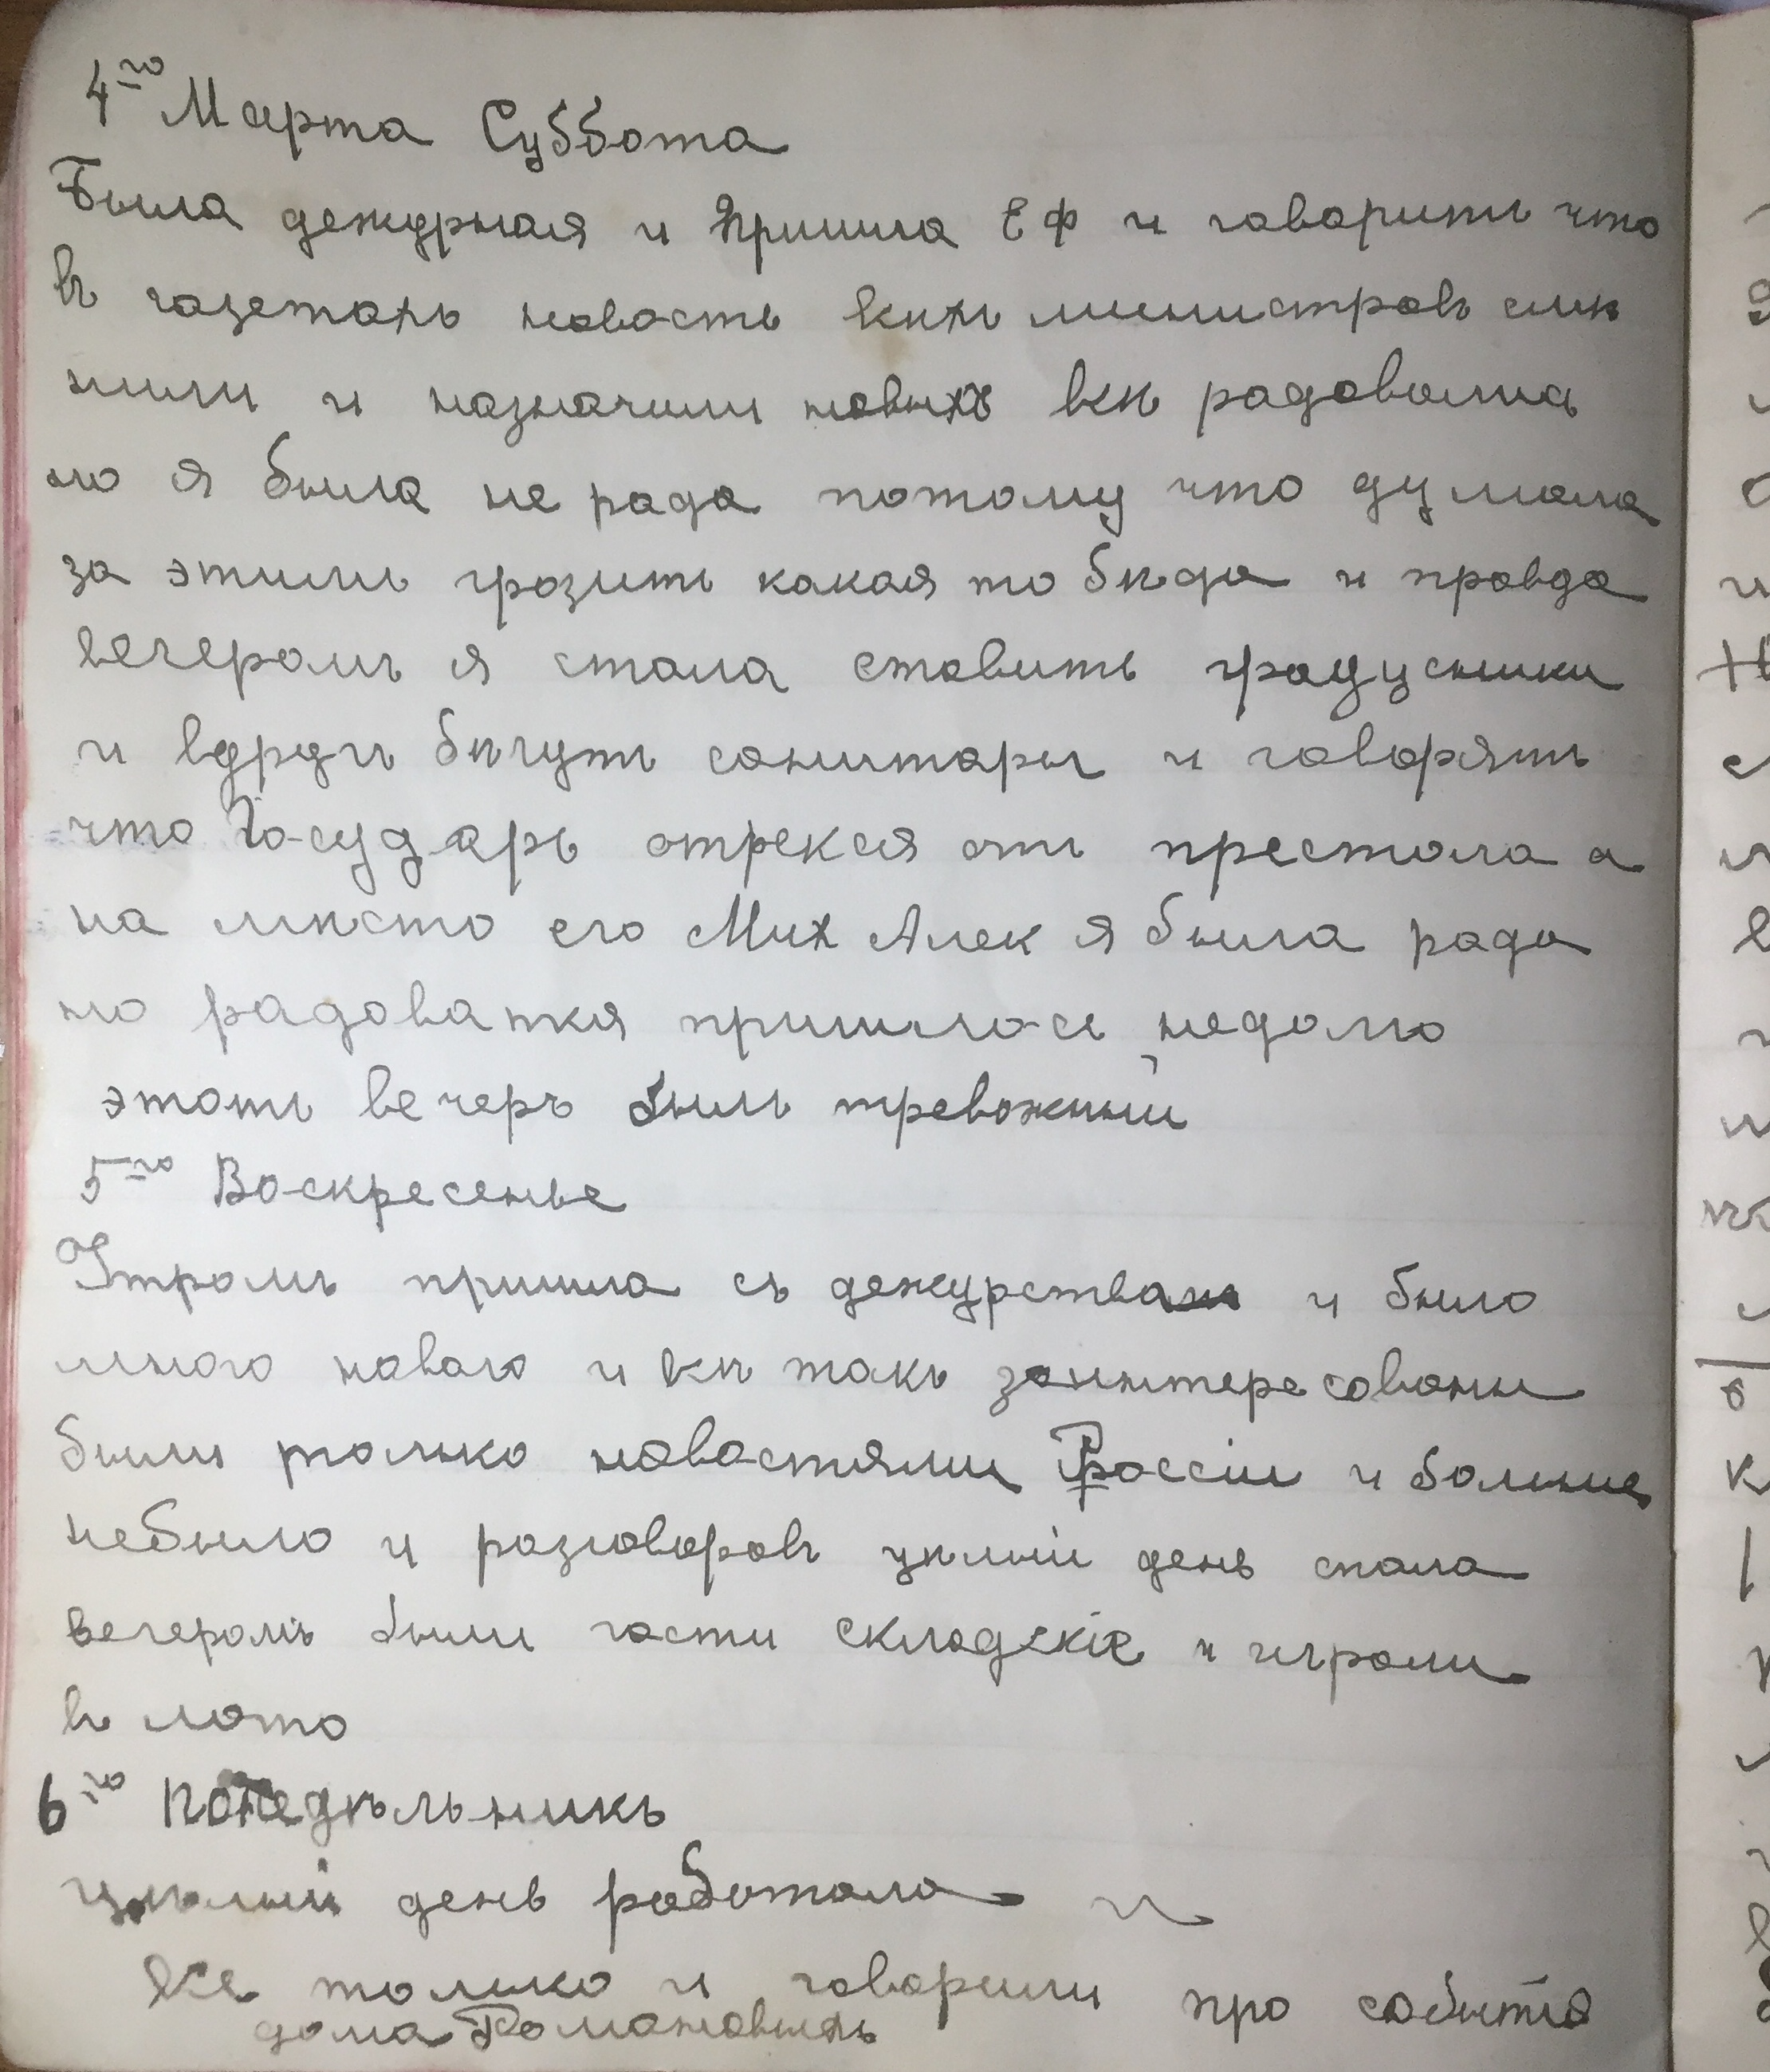 4го Марта Суббота
Была дежурная и пришла Е Ф и говоритъ что
въ газетахъ новость всѣхъ министровъ смѣ
нили и назначили новыхъ всѣ радовались
но я была не рада потому что думала
за этимъ грозитъ какая то бѣда и правда
вечеромъ я стала ставить градусники
и вдругъ бѣгутъ санитары и говорятъ
что Государь отрекся отъ престола а
на мѣсто его Мих Алек я была рада
но радоватся пришлось недолго
этотъ вечеръ былъ тревожный
5го Воскресенье
Утромъ пришла съ дежурства и было
много новаго и всѣ такъ заинтересованы
были только новостями Россіи и больше
небыло и разговоровъ цѣлый день спала
вечеромъ были гости складскіе и играли
в лото
6го Понедѣльникъ
цѣлый день работала и
все только и говорили про событіе
дома Романовыхъ